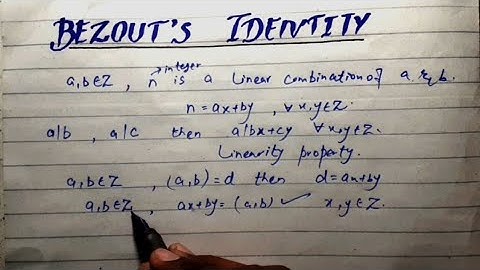 BEZOUT'S IDENTITY
integer
a,b∈Z, n is a Linear combination of a & b.
n = ax+by, ∀ x,y∈Z.
a|b, a|c then a|bx+cy ∀ x,y∈Z.
Linearity property.
a,b∈Z, (a,b)=d then d=ax+by
a,b∈Z, ax+by=(a,b) ✓ x,y∈Z.